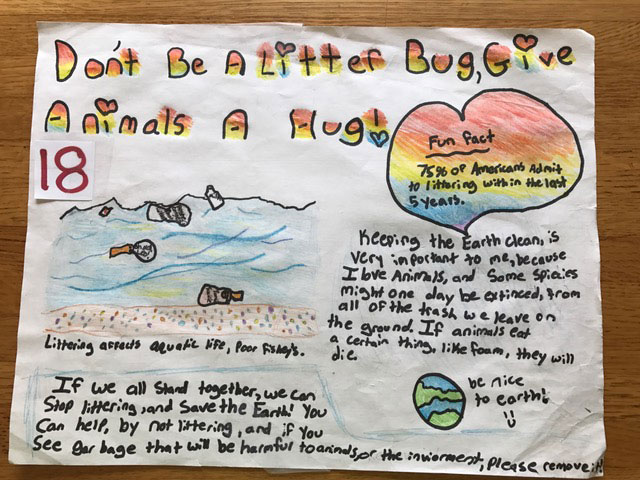 Don't Be A Litter Bug, Give
Animals A Hug!
18
Fun Fact
75% of Americans Admit
to littering within the last
5 years.
Keeping the Earth clean, is
very important to me, because
I love Animals, and some spicies
might one day be extinced, from
all of the trash we leave on
the ground. If animals eat
a certain thing, like foam, they will
die.
Littering affects aquatic life, Poor fishys.
be nice
to earth!
If we all stand together, we can
Stop littering, and save the Earth! You
Can help, by not littering, and if you
See Garbage that will be harmful to animals, or the inviorment, please remove it!